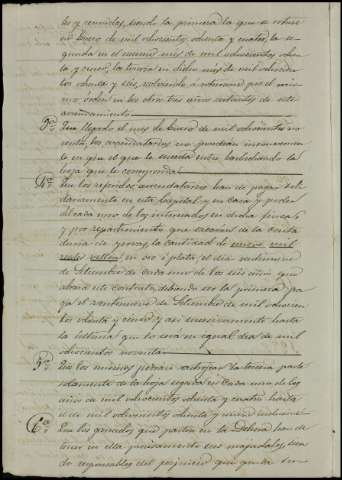 les y reunidos, siendo la primera la que se
en Enero de mil ochocientos ochenta y cuatro, la se
gunda en el mismo mes de mil ochocientos ochen
ta y cinco, la tercera en dicho mes de mil ochocien
tos ochenta y seis, volviendo a por el mis
mo orden en los otros tres años restantes de este
arrendamiento
3ª Que llegado el mes de Enero de mil ochocientos no
venta, los arrendatarios no pondrán inconvenien
te en que el que le suceda entre barbechando la
hoja que le corresponda
4ª Que los referidos arrendatarios han de pagar
en esta Capital y en casa y poder
de cada uno de los interesados en dicha finca
y por repartimiento que de la Conta
duria de la cantidad de once mil
reales vellon, en oro o plata el dia veintinueve
de Setiembre de cada uno de los seis años que
abraza este contrato, debiendo ser la primera pa
ga el veintinueve de Setiembre de mil ochocien
tos ochenta y cuatro, y asi sucesivamente hasta
la ultima que lo será en igual dia de mil
ochocientos noventa
5ª Que los mismos podrán la tercera parte
de la hoja segun en cada uno de los
años de mil ochocientos ochenta y cuatro hasta
el de mil ochocientos ochenta y nueve inclusive
6ª Que los ganados que pasten en la Dehesa han de
tener en ella precisamente sus majadales, sien
do responsables del perjuicio que por la